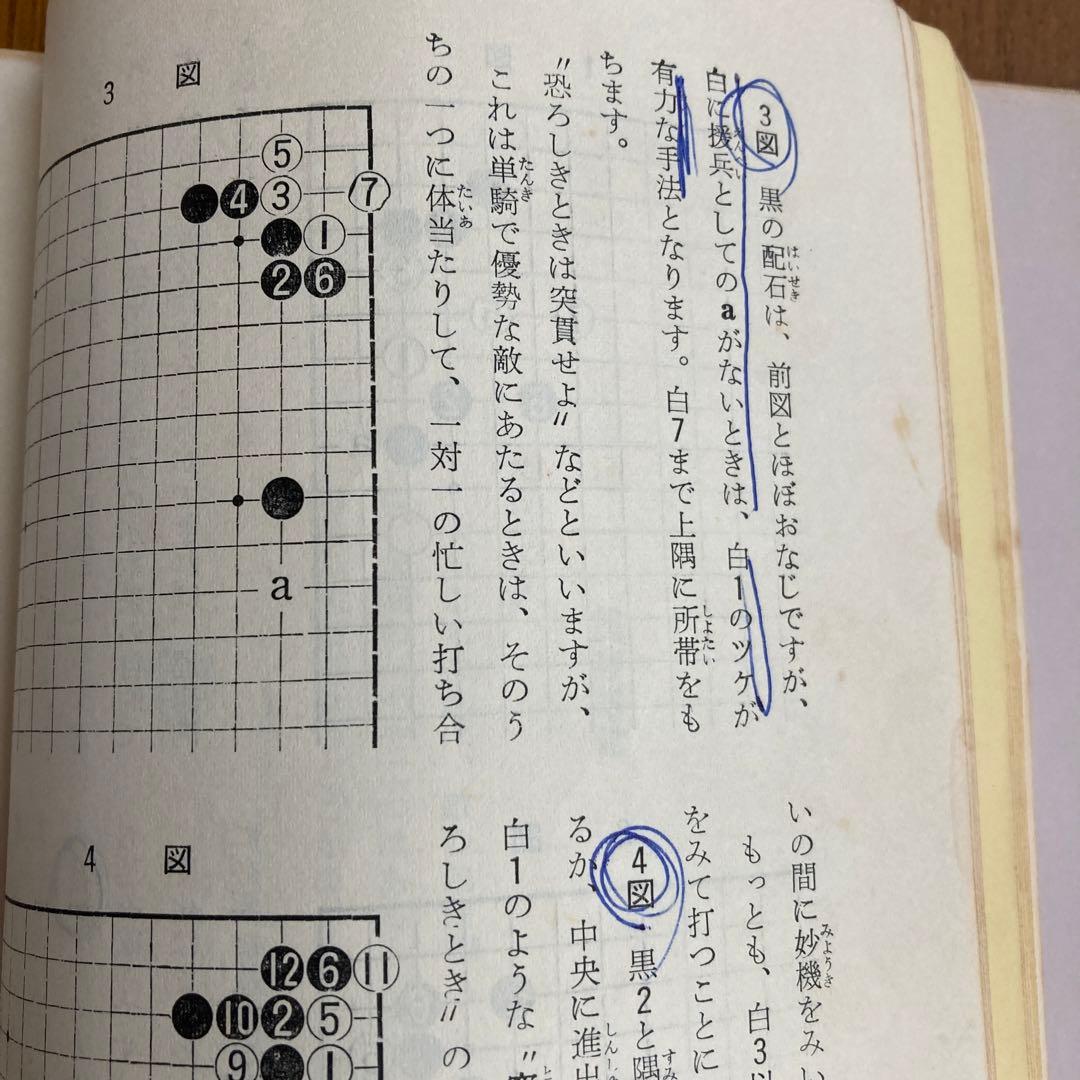 3図 黒の配石は、前図とほぼおなじですが、
白に援兵としてのaがないときは、白1のツケが
有力な手法となります。白7まで上隅に所帯をも
ちます。
〃恐ろしきときは突貫せよ〃などといいますが、
これは単騎で優勢な敵にあたるときは、そのう
ちの一つに体当たりして、一対一の忙しい打ち合
3図
5
4 3 7
1
2 6
a
いの間に妙機をみい
もっとも、白3以
をみて打つことに
4図 黒2と隅
るか、中央に進出
白1のような〃突
ろしきとき〃の
4図
12 6 11
10 2 5
9 1